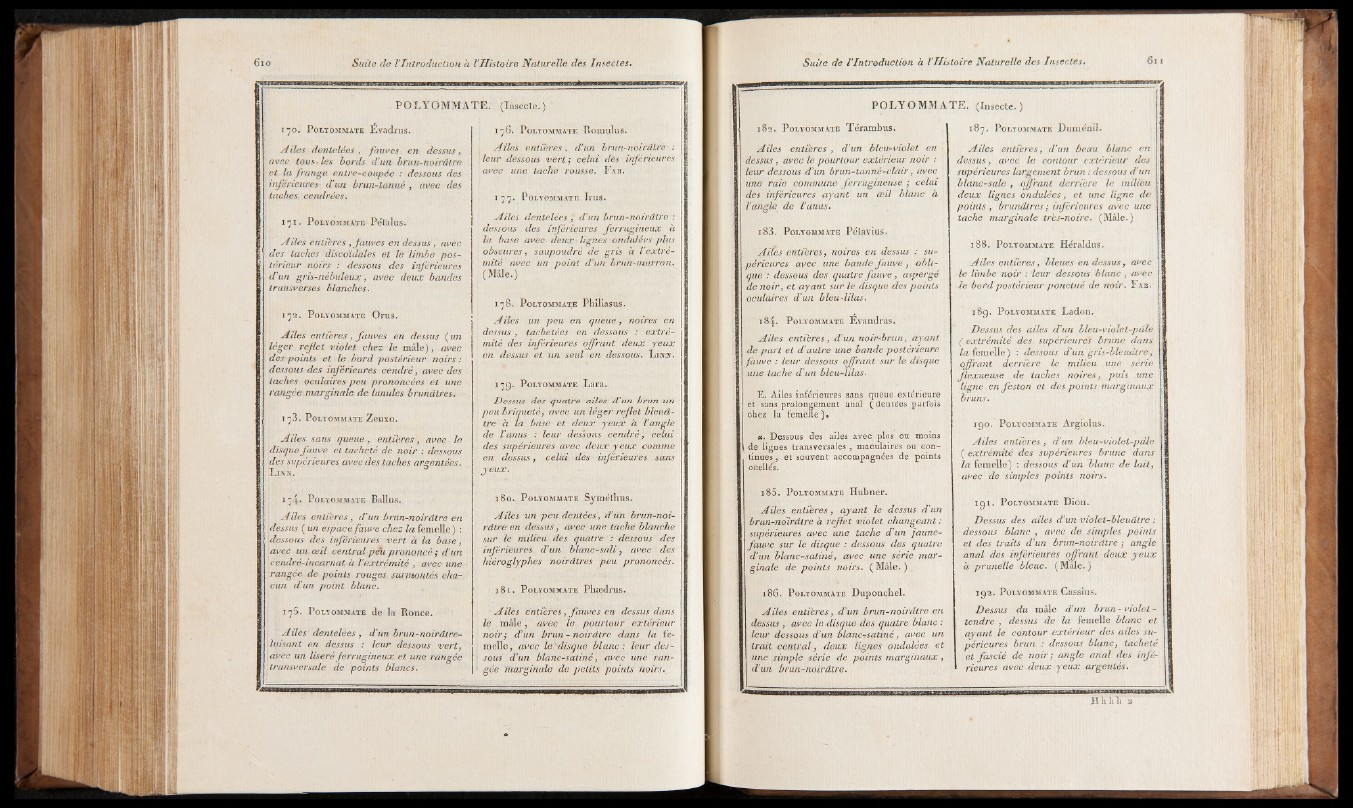 610 Suite de l'Introduction à l'Histoire Naturelle des Insectes.
POLYOMMATE. (Insecte.)
170. Polyommate Évadrus.
Ailes dentelées, fauves en dessus,
avec tous les bords d'un brun-noirâtre
et la frange entre-coupée : dessous des
inférieures d'un brun-tanné, avec des
taches cendrées.
171. Polyommate Pétalus.
Ailes entières, fauves en dessus, avec
des taches discoïdales et le limbe pos-
térieur noirs : dessous des inférieures
d'un gris-nébuleux, avec deux bandes
transverses blanches.
172. Polyommate Orus.
Ailes entières, fauves en dessus (un
léger reflet violet chez le mâle), avec
des points et le bord postérieur noirs :
dessous des inférieures cendré, avec des
taches oculaires peu prononcées et une
rangée marginale de lunules brunâtres.
173. Polyommate Zeuxo.
Ailes sans queue, entières, avec le
disque fauve et tacheté de noir : dessous
des supérieures avec des taches argentées.
Linn.
174. Polyommate Ballus.
Ailes entières, d'un brun-noirâtre en
dessus (un espace fauve chez la femelle) :
dessous des inférieures vert à la base,
avec un œil central peu prononcé; d'un
cendré-incarnat à l'extrémité, avec une
rangée de points rouges surmontés cha-
cun d'un point blanc.
175. Polyommate de la Ronce.
Ailes dentelées, d'un brun-noirâtre-
luisant en dessus : leur dessous vert,
avec un liseré ferrugineux et une rangée
transversale de points blancs.
176. Polyommate Romulus.
Ailes entières, d'un brun-noirâtre :
leur dessous vert; celui des inférieures
avec une tache rousse. Fab.
177. Polyommate Irus.
Ailes dentelées, d'un brun-noirâtre :
dessous des inférieures ferrugineux à
la base avec deux lignes ondulées plus
obscures, saupoudré de gris à l'extré-
mité avec un point d'un brun-marron.
(Mâle.)
178. Polyommate Phliasus.
Ailes un peu en queue, noires en
dessus, tachetées en dessous : extré-
mité des inférieures offrant deux yeux
en dessus et un seul en dessous. Linn.
179. Polyommate Lara.
Dessus des quatre ailes d'un brun un
peu briqueté, avec un léger reflet bleuâ-
tre à la base et deux yeux à l'angle
de l'anus : leur dessous cendré, celui
des supérieures avec deux yeux comme
en dessus, celui des inférieures sans
yeux.
180. Polyommate Syméthus.
Ailes un peu dentées, d'un brun-noi-
râtre en dessus, avec une tache blanche
sur le milieu des quatre : dessous des
inférieures d'un blanc-sali, avec des
hiéroglyphes noirâtres peu prononcés.
181. Polyommate Phædrus.
Ailes entières, fauves en dessus dans
le mâle, avec le pourtour extérieur
noir; d'un brun-noirâtre dans la fe-
melle, avec le disque blanc : leur des-
sous d'un blanc-satiné, avec une ran-
gée marginale de petits points noirs.
Suite de l'Introduction à l'Histoire Naturelle des Insectes. 611
POLYOMMATE. (Insecte.)
182. Polyommate Térambus.
Ailes entières, d'un bleu-violet en
dessus, avec le pourtour extérieur noir :
leur dessous d'un brun-tanné-clair, avec
une raie commune ferrugineuse; celui
des inférieures ayant un œil blanc à
l'angle de l'anus.
183. Polyommate Pélavius.
Ailes entières, noires en dessus : su-
périeures avec une bande fauve, obli-
que : dessous des quatre fauve, aspergé
de noir, et ayant sur le disque des points
oculaires d'un bleu-lilas.
184. Polyommate Évandrus.
Ailes entières, d'un noir-brun, ayant
de part et d'autre une bande postérieure
fauve : leur dessous offrant sur le disque
une tache d'un bleu-lilas.
E. Ailes inférieures sans queue extérieure
et sans prolongement anal (dentées parfois
chez la femelle).
a. Dessous des ailes avec plus ou moins
de lignes transversales, maculaires ou con-
tinues, et souvent accompagnées de points
ocellés.
185. Polyommate Hubner.
Ailes entières, ayant le dessus d'un
brun-noirâtre à reflet violet changeant :
supérieures avec une tache d'un jaune-
fauve sur le disque : dessous des quatre
d'un blanc-satiné, avec une série mar-
ginale de points noirs. (Mâle.)
186. Polyommate Duponchel.
Ailes entières, d'un brun-noirâtre en
dessus, avec le disque des quatre blanc :
leur dessous d'un blanc-satiné, avec un
trait central, deux lignes ondulées et
une simple série de points marginaux,
d'un brun-noirâtre.
187. Polyommate Duménil.
Ailes entières, d'un beau blanc en
dessus, avec le contour extérieur des
supérieures largement brun : dessous d'un
blanc-sale, offrant derrière le milieu
deux lignes ondulées, et une ligne de
points, brunâtres; inférieures avec une
tache marginale très-noire. (Mâle.)
188. Polyommate Héraldus.
Ailes entières, bleues en dessus, avec
le limbe noir : leur dessous blanc, avec
le bord postérieur ponctué de noir. Fab.
189. Polyommate Ladon.
Dessus des ailes d'un bleu-violet-pâle
(extrémité des supérieures brune dans
la femelle) : dessous d'un gris-bleuâtre,
offrant derrière le milieu une série
flexueuse de taches noires, puis une
ligne en feston et des points marginaux
bruns.
190. Polyommate Argiolus.
Ailes entières, d'un bleu-violet-pâle
(extrémité des supérieures brune dans
la femelle) : dessous d'un blanc de lait,
avec de simples points noirs.
191. Polyommate Dion.
Dessus des ailes d'un violet-bleuâtre :
dessous blanc, avec de simples points
et des traits d'un brun-noirâtre; angle
anal des inférieures offrant deux yeux
à prunelle bleue. (Mâle.)
192. Polyommate Cassius.
Dessus du mâle d'un brun-violet-
tendre, dessus de la femelle blanc et
ayant le contour extérieur des ailes su-
périeures brun : dessous blanc, tacheté
et fascié de noir; angle anal des infé-
rieures avec deux yeux argentés.
Hhhh 2